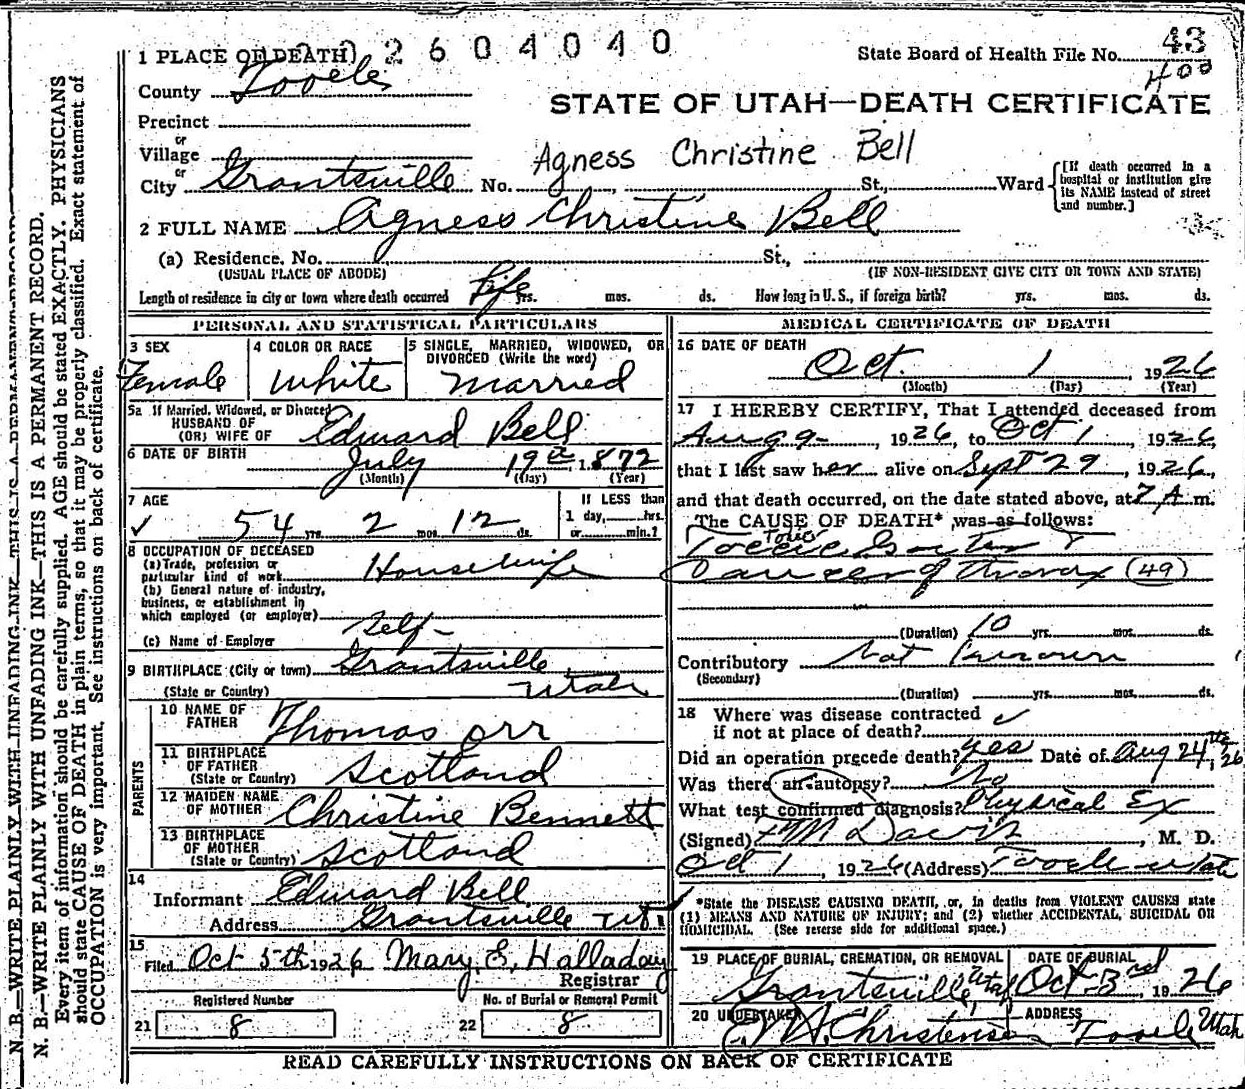 1 PLACE OF DEATH 2604040
State Board of Health File No. 43
400
County Tooele
STATE OF UTAH—DEATH CERTIFICATE
Precinct
or
Village
Agness Christine Bell
or
City Grantsville No. St., Ward
[If death occurred in a hospital or institution give its NAME instead of street and number.]
2 FULL NAME Agness Christine Bell
(a) Residence, No. St.,
(USUAL PLACE OF ABODE) (IF NON-RESIDENT GIVE CITY OR TOWN AND STATE)
Length of residence in city or town where death occurred Life yrs. mos. ds. How long in U. S., if foreign birth? yrs. mos. ds.
PERSONAL AND STATISTICAL PARTICULARS
3 SEX
Female
4 COLOR OR RACE
White
5 SINGLE, MARRIED, WIDOWED, OR DIVORCED (Write the word)
Married
5a If Married, Widowed, or Divorced
HUSBAND OF
(OR) WIFE OF Edward Bell
6 DATE OF BIRTH July 19th, 1872
(Month) (Day) (Year)
7 AGE
54 yrs. 2 mos. 12 ds.
If LESS than
1 day, hrs.
or min.?
8 OCCUPATION OF DECEASED
(a) Trade, profession or
particular kind of work Housewife
(b) General nature of industry,
business, or establishment in
which employed (or employer)
Self-
(c) Name of Employer
9 BIRTHPLACE (City or town) Grantsville
(State or Country) Utah
PARENTS
10 NAME OF FATHER Thomas Orr
11 BIRTHPLACE OF FATHER
(State or Country) Scotland
12 MAIDEN NAME OF MOTHER Christine Bennett
13 BIRTHPLACE OF MOTHER
(State or Country) Scotland
14
Informant Edward Bell
Address Grantsville Ut.
15
Filed Oct 5th 1926 Mary E. Halladay
Registrar
Registered Number
21 8
No. of Burial or Removal Permit
22 8
MEDICAL CERTIFICATE OF DEATH
16 DATE OF DEATH
Oct. 1 1926
(Month) (Day) (Year)
17 I HEREBY CERTIFY, That I attended deceased from
Aug 9-, 1926, to Oct 1, 1926,
that I last saw her alive on Sept 29, 1926,
and that death occurred, on the date stated above, at 7 A. m.
The CAUSE OF DEATH* was as follows:
Toxic
Goiter &
Cancer of Thorax (49)
(Duration) 10 yrs. mos. ds.
Contributory Not Known
(Secondary)
(Duration) yrs. mos. ds.
18 Where was disease contracted
if not at place of death?
Did an operation precede death? Yes Date of Aug 24th, 26
Was there an autopsy? No
What test confirmed diagnosis? Physical Ex
(Signed) M Davis, M. D.
Oct 1, 1926 (Address) Tooele Utah
*State the DISEASE CAUSING DEATH, or, in deaths from VIOLENT CAUSES state
(1) MEANS AND NATURE OF INJURY; and (2) whether ACCIDENTAL, SUICIDAL OR
HOMICIDAL. (See reverse side for additional space.)
19 PLACE OF BURIAL, CREMATION, OR REMOVAL
Grantsville, Utah
DATE OF BURIAL
Oct-3rd, 1926
20 UNDERTAKER
Christensen
ADDRESS
Tooele Utah
READ CAREFULLY INSTRUCTIONS ON BACK OF CERTIFICATE
N. B.—WRITE PLAINLY WITH UNFADING INK—THIS IS A PERMANENT RECORD.
N. B.—WRITE PLAINLY WITH UNFADING INK—THIS IS A PERMANENT RECORD.
Every item of information should be carefully supplied. AGE should be stated EXACTLY. PHYSICIANS
should state CAUSE OF DEATH in plain terms, so that it may be properly classified. Exact statement of
OCCUPATION is very important. See instructions on back of certificate.